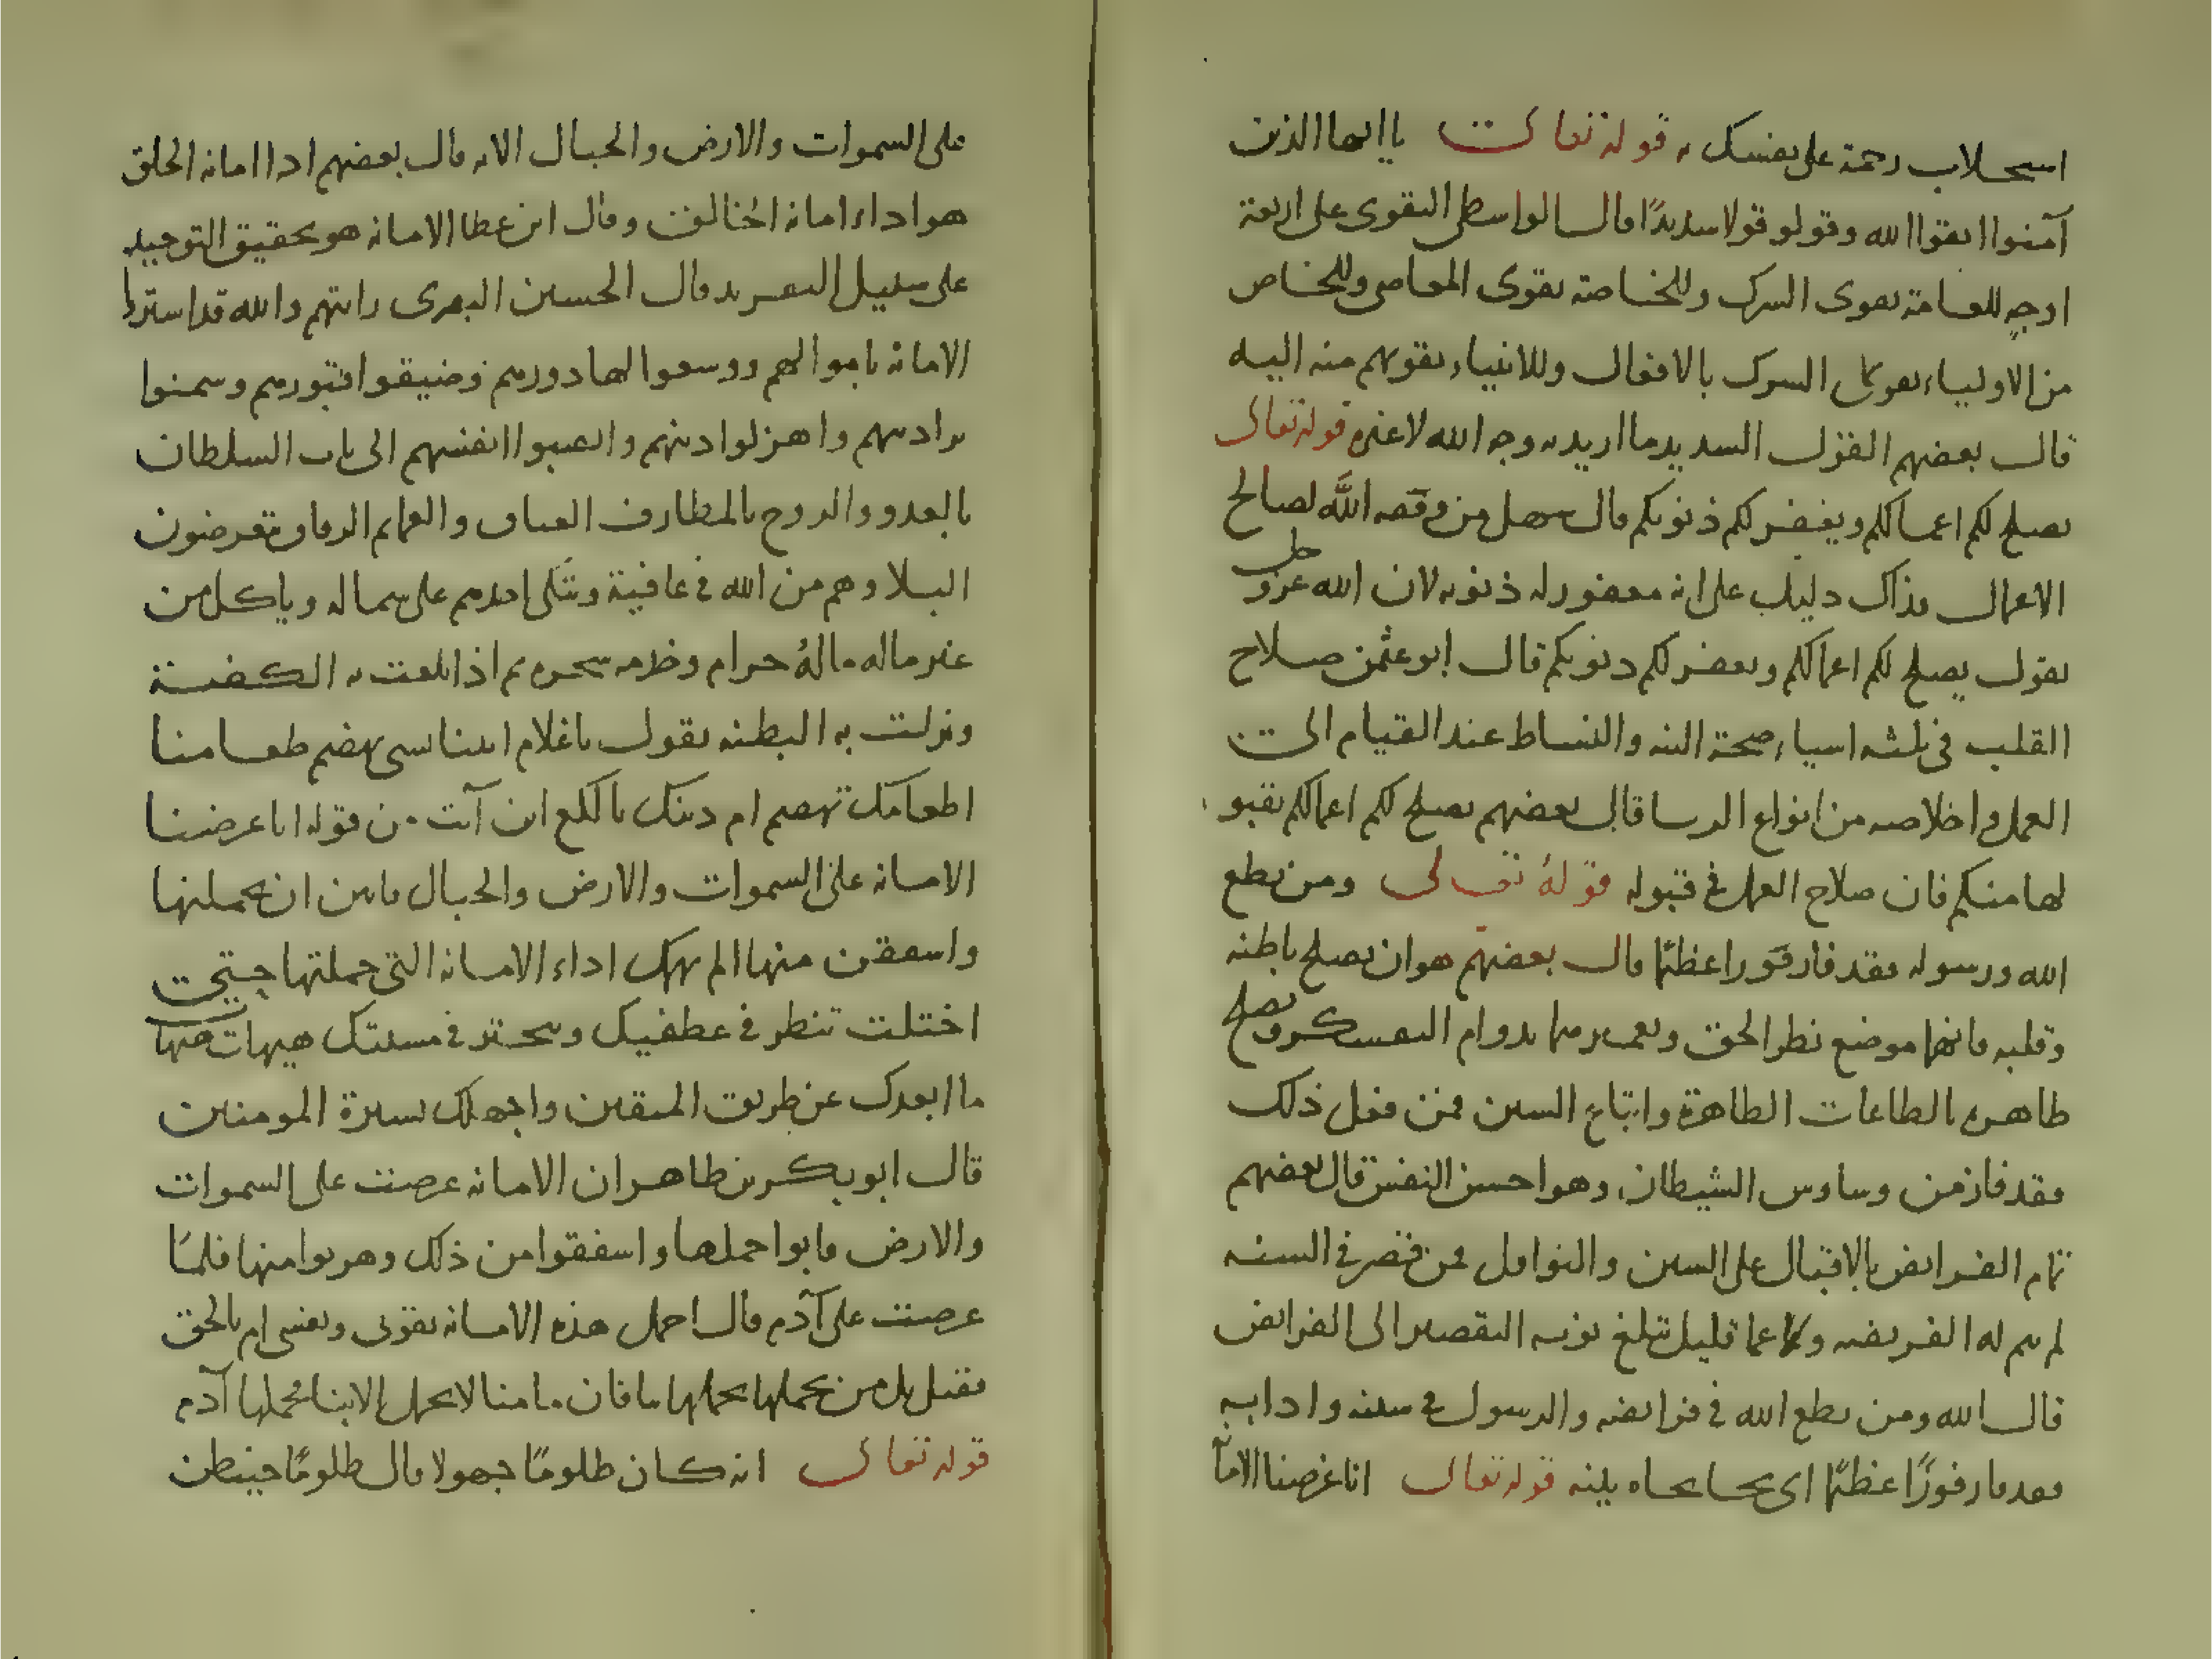 استجلاب رحمة على نفسك ، قوله تعالى يا ايها الذين
آمنوا اتقوا الله وقولو قولا سديدًا قال الواسطى التقوى على اربعة
اوجه للعامة تقوى الشرك وللخاصة تقوى المعاصى وللخاص
من الاولياء تقوى الشرك بالافعال وللانبياء تقويهم منه اليه
قال بعضهم القول السديد ما اريد به وجه الله لا غيره قوله تعالى
يصلح لكم اعمالكم ويغفر لكم ذنوبكم قال سهل من وفقه اللَّه لصالح
الاعمال فذاك دليل على انه مغفور له ذنوبه لان الله عز وجل
يقول يصلح لكم اعمالكم ويغفر لكم ذنوبكم قال ابو عثمن صلاح
القلب فى ثلثه اشياء صحة النيه والنشاط عند القيام الى
العمل واخلاصه من انواع الريا قال بعضهم يصلح لكم اعمالكم بقبو
لها منكم فان صلاح العمل فى قبوله قوله تعالى ومن يطع
الله ورسوله فقد فاز فوزا عظيمًا قال بعضهم هو ان يصلح باطنه
وقلبه فانهما موضع نظر الحق ويعمرهما بدوام التفكر ويصلح
ظاهره بالطاعات الظاهرة واتباع السنن فمن فعل ذلك
فقد فاز من وساوس الشيطان، وهواجس النفس قال بعضهم
تمام الفرايض بالاقبال على السنن والنوافل فمن قصر فى السنه
لم يتم له الفريضه وكما عما قليل تبلغ نوبه التقصير الى الفرايض
قال الله ومن يطع الله فى فرايضه والرسول فى سننه وادابه
فقد فاز فوزًا عظيمًا اى نجا نجاه بينه قوله تعالى انا عرضنا الاما
على السموات والارض والجبال الايه قال بعضهم اداا امانه الخلق
هو اداء امانه الخالق وقال ابن عطا الامانه هو تحقيق التوحيد
على سبيل التفريد قال الحسين البصرى رايتهم والله قد استردا
الامانه باموالهم ووسعوا لها دورهم وضيقوا قبورهم وسمنوا
براذينهم واهزلوا دينهم واتعبوا انفسهم الى باب السلطان
بالغدو والروح بالمطارف العتاق والعمايم الرقاق يتعرضون
البلا وهم من الله فى عافية ويتكى احدهم على شماله وياكل من
غير ماله ماله حرام وخدمه سحره ثم اذا بلغت به الكضة
ونزلت به البطنه يقول يا غلام ايتنا بشى يهضم طعامنا
اطعامك تهضم ام دينك يا لكع اين آنت من قوله انا عرضنا
الامانه على السموات والارض والجبال فابين ان يحملنها
واشفقن منها الم يهمك اداء الامانه التى حملتها حتى
اختلت تنظر فى عطفيك وتبختر فى مشيتك هيهات هيهات
ما ابعدك عن طريق المتقين واجهلك بسيرة المومنين
قال ابو بكر بن طاهر ان الامانه عرضت على السموات
والارض فابوا حملها واشفقوا من ذلك وهربوا منها فلمّا
عرضت على آدم قال احمل هذه الامانه بقوتى وبنفسى ام بالحق
فقيل بل من يحملها يحملها بنا فان ما منا لا يحمل الا بنا فحملها آدم
قوله تعالى انه كان ظلومًا جهولا قال ظلومًا حين ظن